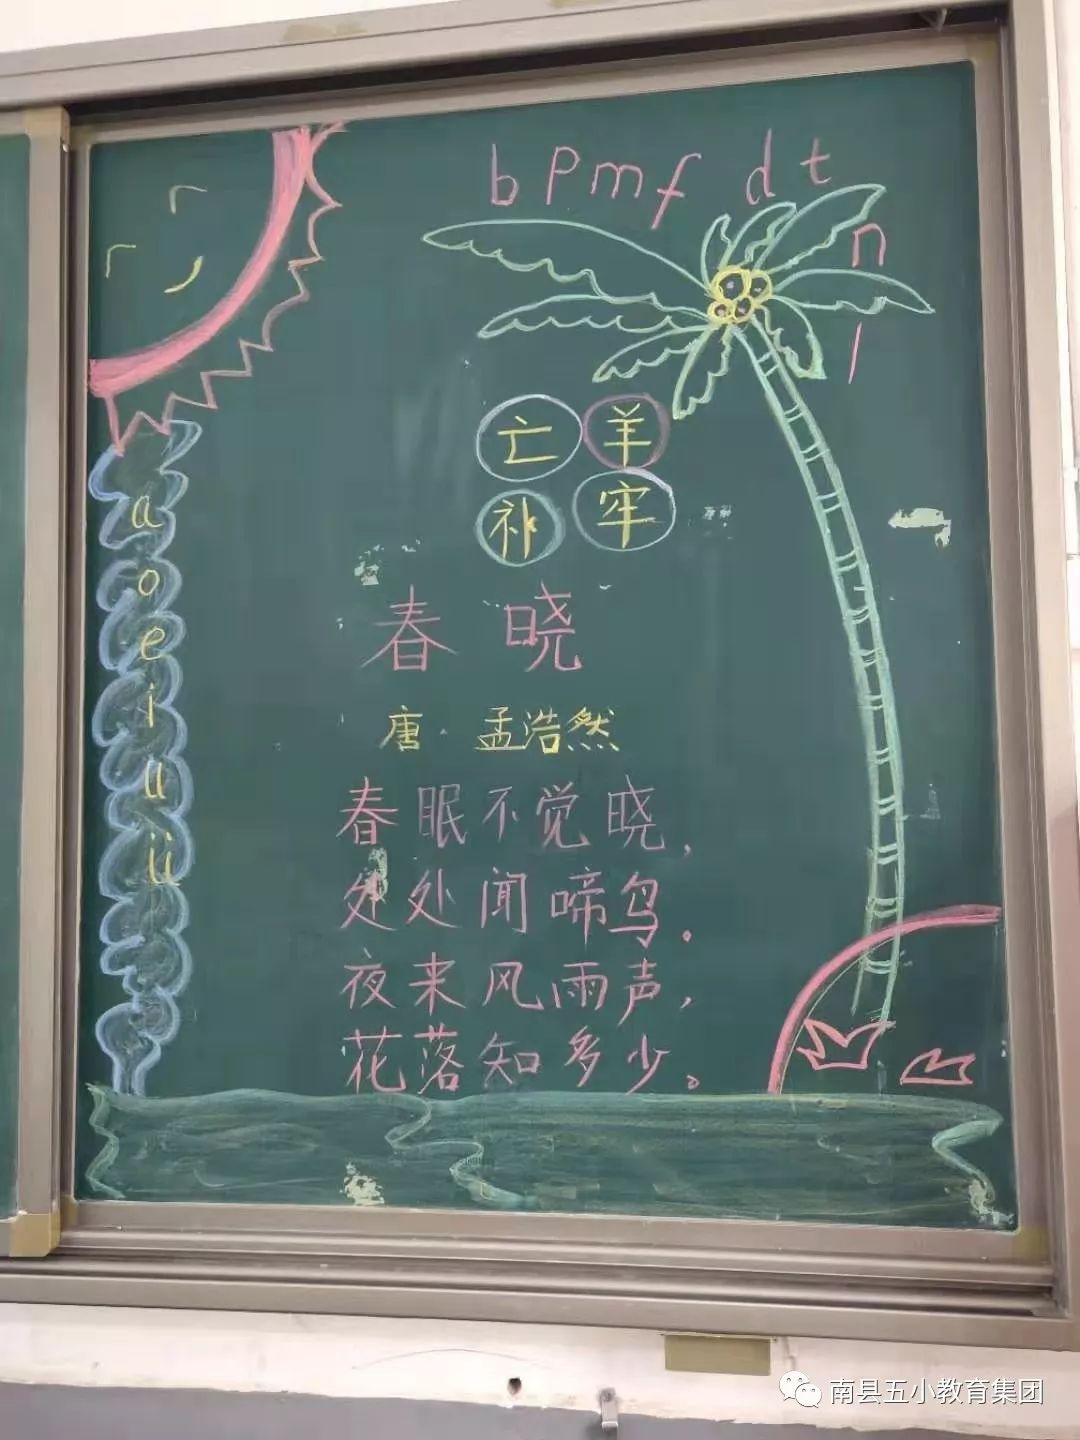 b p m f d t
n
l
亡羊
补牢
a
o
e
i
u
ü
春晓
唐·孟浩然
春眠不觉晓,
处处闻啼鸟。
夜来风雨声,
花落知多少。
南县五小教育集团